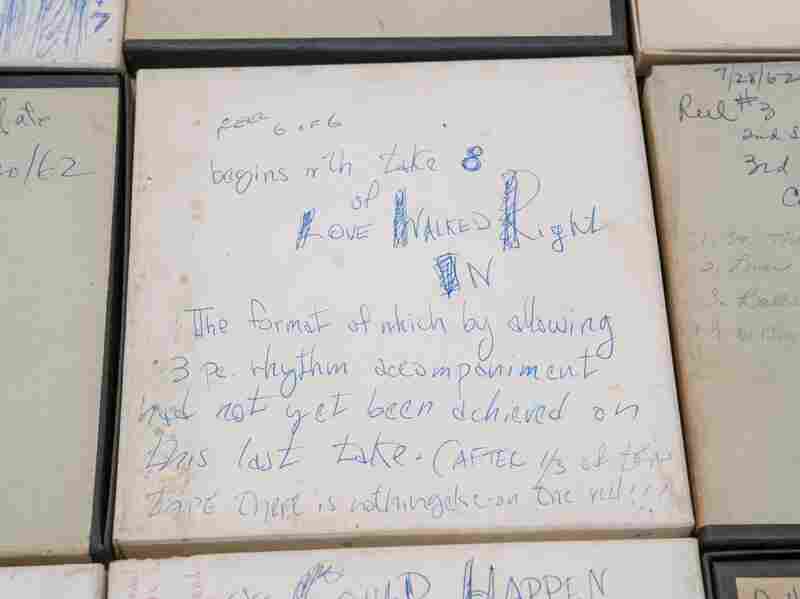 7
REEL 6 of 6
begins with take 8
of
LOVE WALKED Right
IN
The format of which by allowing
3 pc. rhythm accompaniment
had not yet been achieved on
this last take. (AFTER 1/3 of
tape there is nothing else on the reel!!!
COULD HAPPEN
/62
7/28/62
Reel #3
2nd S
3rd
C
3.